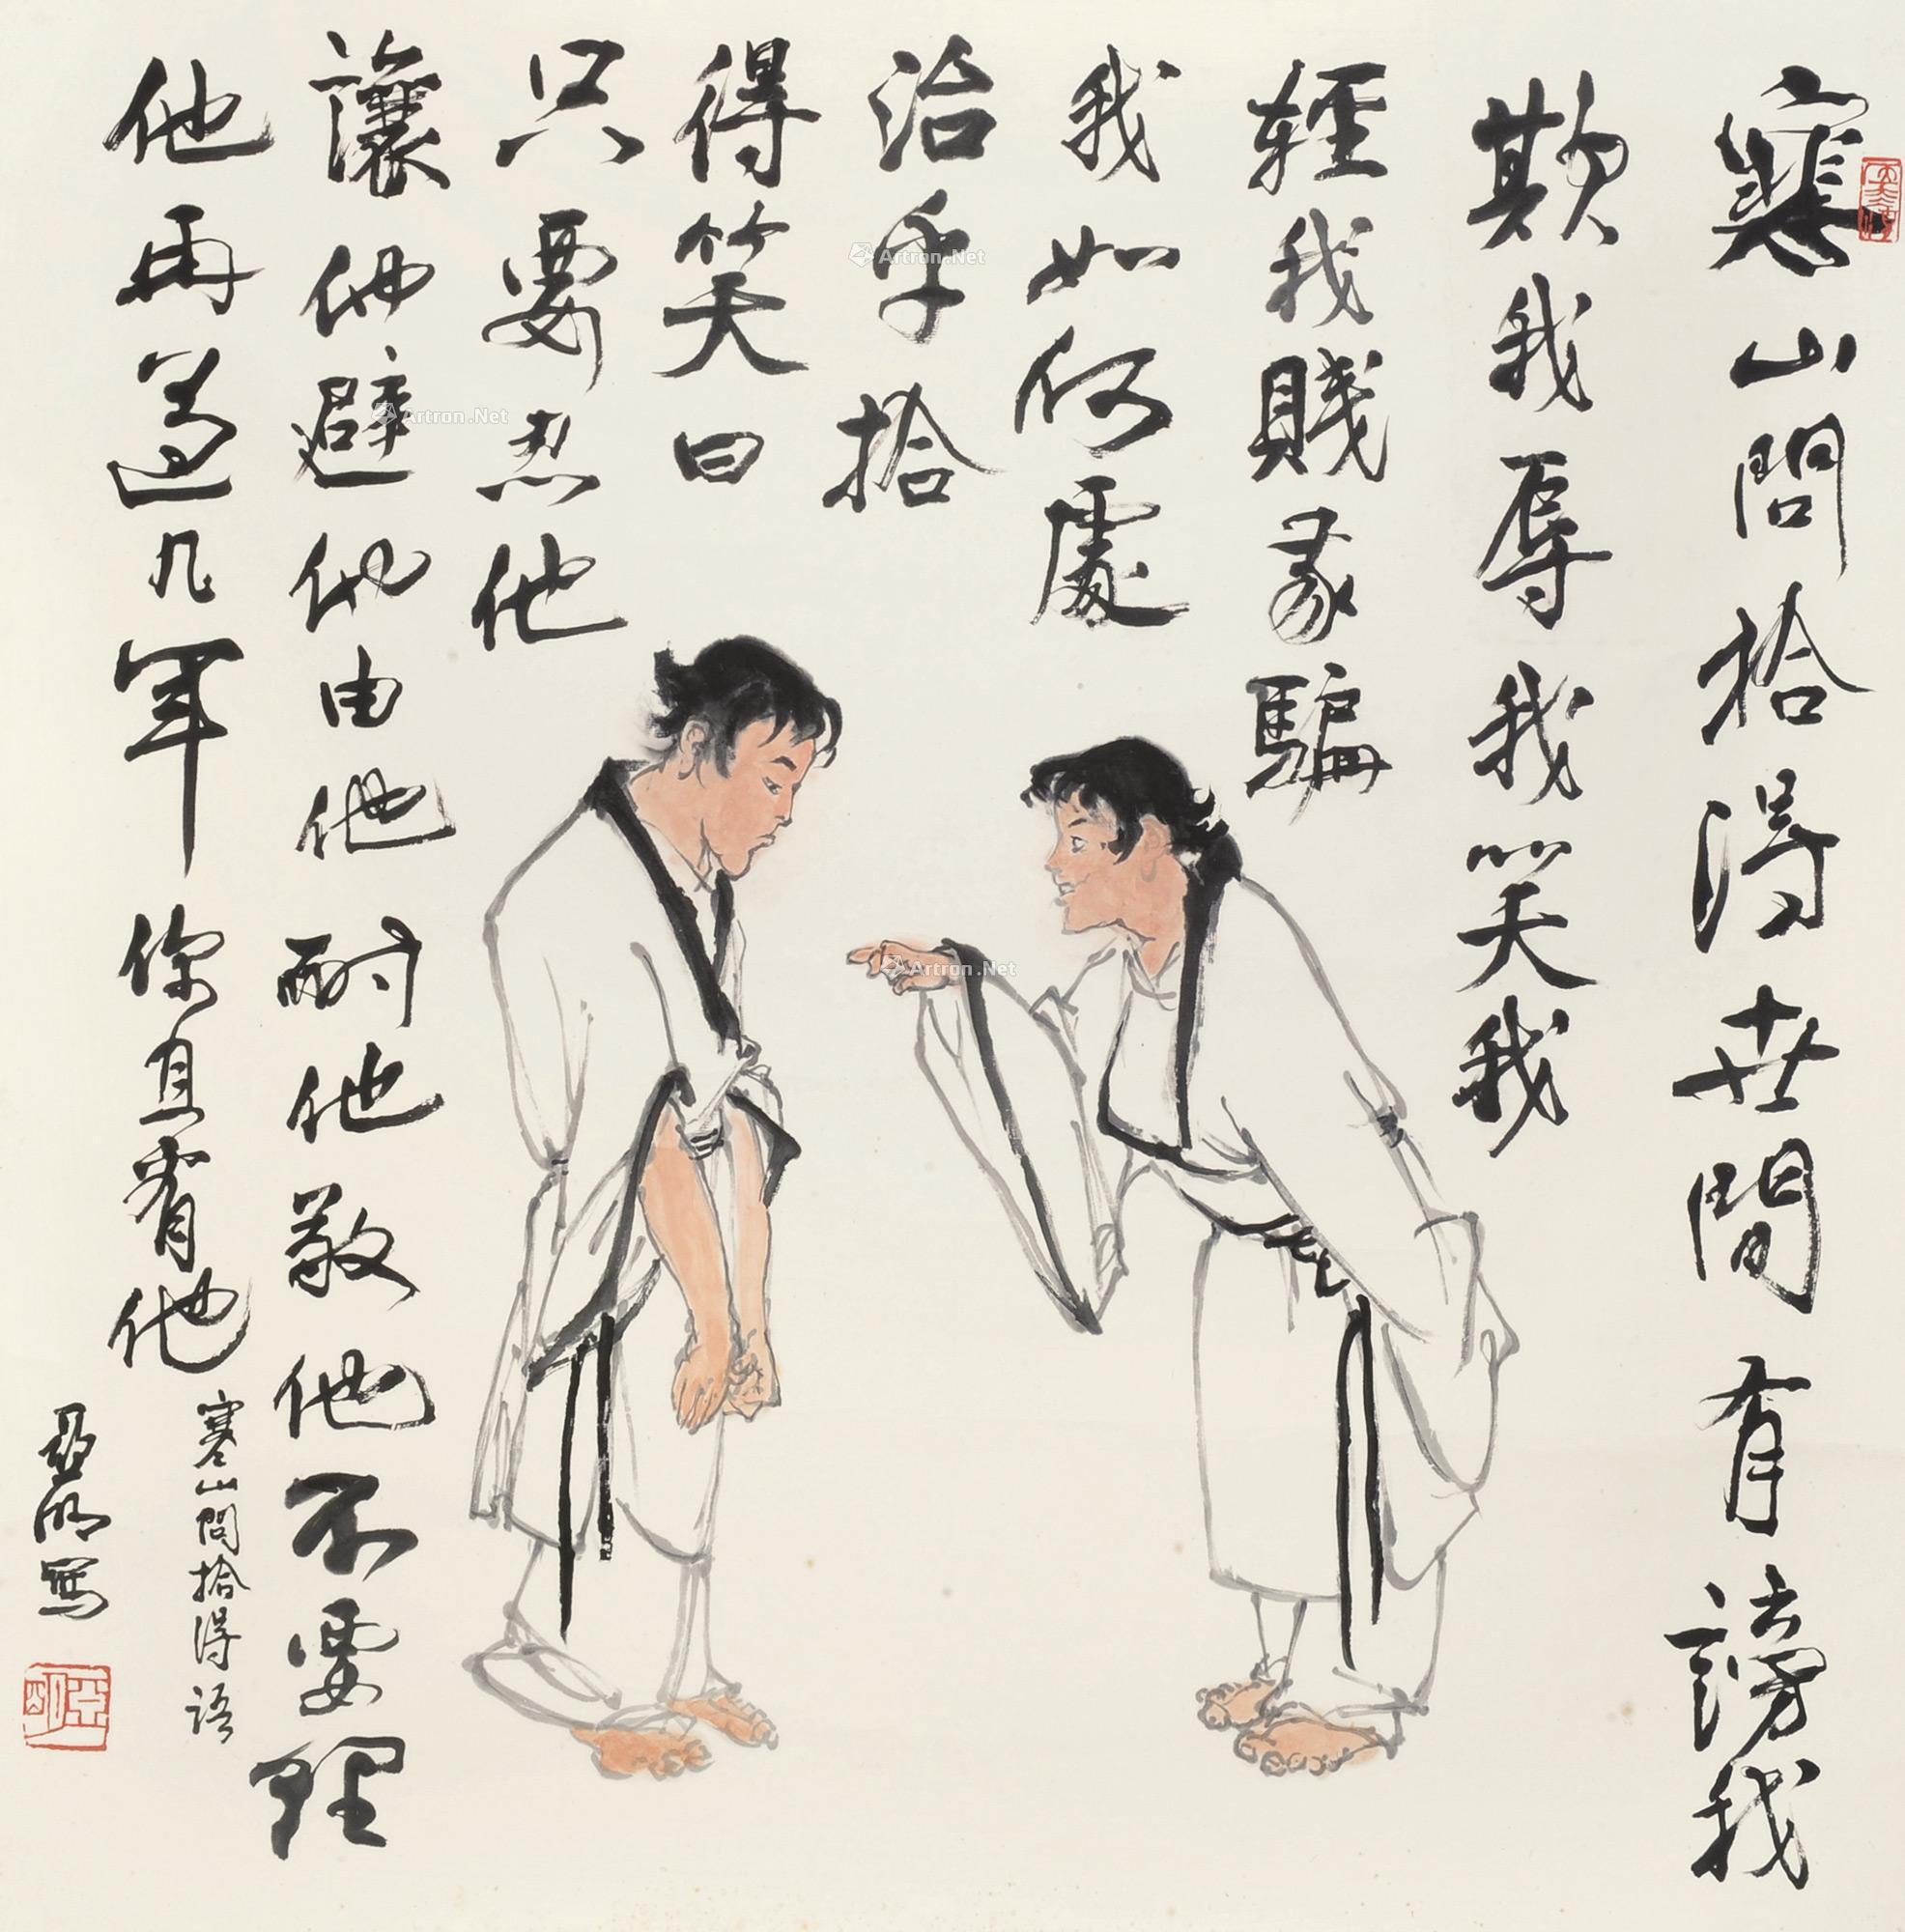 寒山問拾得世間有謗我
欺我辱我笑我
輕我賤我騙
我如何處
治乎拾
得笑曰
只要忍他
讓他避他由他耐他敬他不要理
他再過几年你且看他
寒山問拾得語
亞明寫
亞明
Artron.Net
Artron.Net
Artron.Net